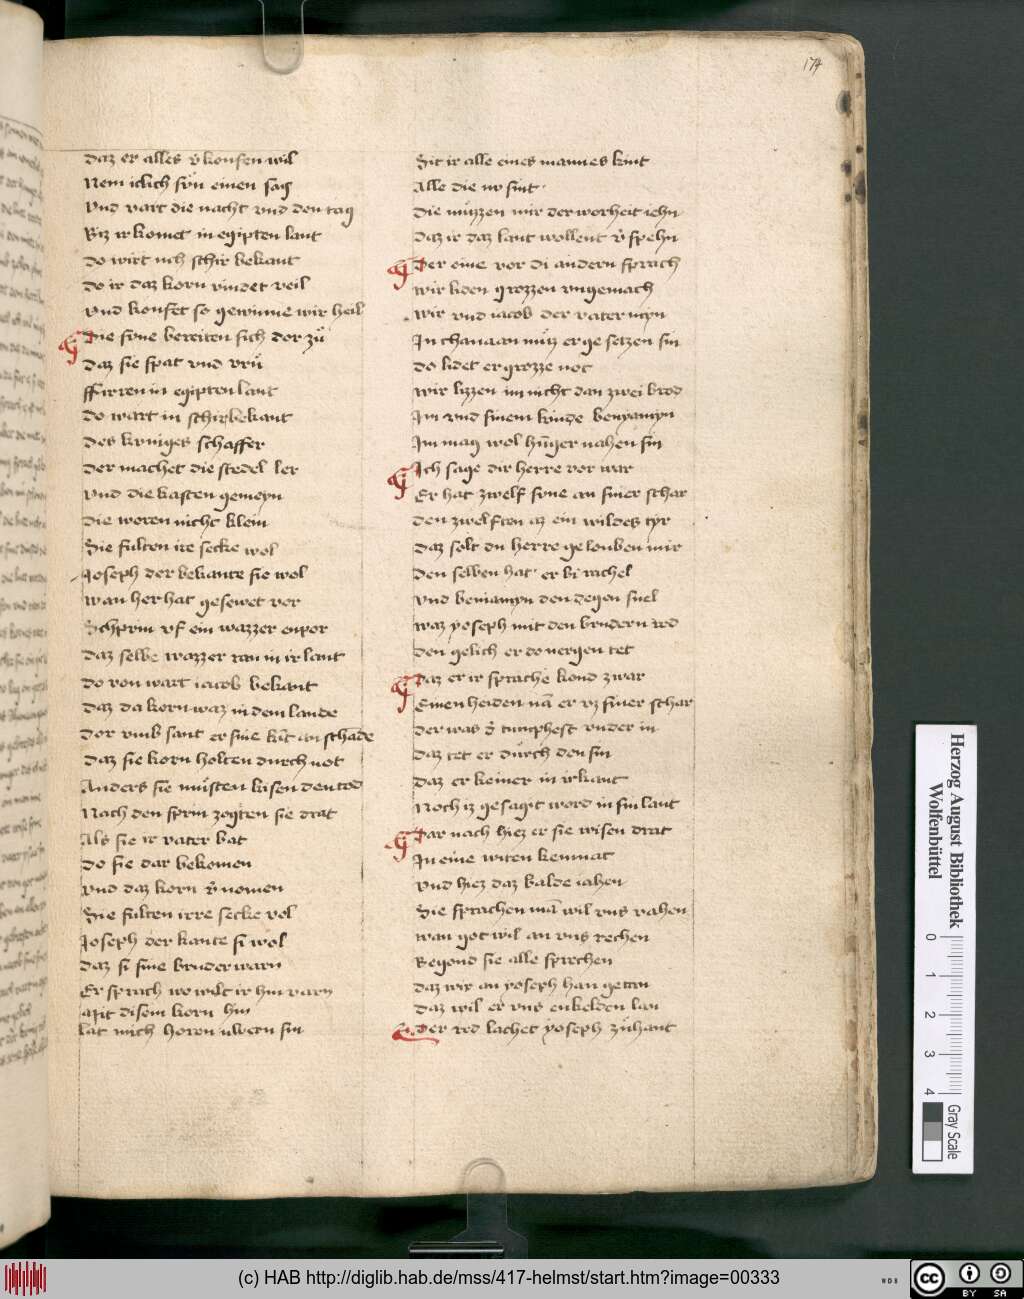 174
Daz er alles v̄kousen wil
Nem iclich sün einen sag
Vnd vart die nacht vnd den tag
Biz ir komet in egipten lant
Do wirt uch schir bekant
Do ir daz korn vindet veil
Vnd koufet so gewinne wir heil
Die süne bereiten sich dor zů
Daz sie spat vnd vrů
Furren in egipten lant
Do wart in schir bekant
Des kuniges schaffer
Der machet die stedel ler
Vnd die kasten gemeyn
Die woren nicht klein
Sie fulten ire secke wol
Joseph der bekante sie wol
Wan her hat gesewet vor
Schprın vf ein wazzer enpor
Daz selbe wazzer ran in ir lant
Do von wart iacob bekant
Daz da korn waz in dem lande
Dor vmb sant er sine kīt an schande
Daz sie korn holten durch not
Anders sie musten kisen den tod
Nach den sprın zogten sie drat
Als sie ir vater bat
Do sie dar bekomen
Vnd daz korn v̄nomen
Sie fulten irre secke vol
Joseph der kante si wol
Daz si sine bruder warn
Er sprach wo wilt ir hin varn
Mit disem korn hin
Lat mich horen uwern sin
Sit ir alle eines mannes kint
Alle die nv sint
Die muzzen mir der worheit iehn
Daz ir daz lant wollent v̄spehn
Der eine vor di andern sprach
Wir liden grozzen vngemach
Wir vnd iacob der vater myn
In chanaan muz er gesetzen sin
Do lidet er grozze not
Wir lizzen im nicht dan zwei brod
Im vnd sinem kinde benyamyn
Im mag wol hūger nahen sin
Ich sage dir herre vor war
Er hat zwelf süne an siner schar
Den zwelften az ein wildes tyr
Daz solt du herre gelouben mir
Den selben hat er bi rachel
Vnd beniamyn den degen snel
Waz yoseph mit den brudern rod
Den gelich er do nergen tet
Daz er ir sprache kond zwar
Einen heiden nā er vz siner schar
Der was d̄ tumphest vnder in
Daz tet er durch den sin
Daz er keiner in irkant
Noch iz gesagit word in sin lant
Dar nach hiez er sie wisen drat
In eine witen kemnat
Vnd hiez daz balde iahen
Sie sprachen mā wil vns vahen
Wan got wil an vns rechen
Begond sie alle sprechen
Daz wir an yoseph han getan
Daz wil er vns enkelden lan
Der rod lachet yoseph zůhant
Herzog August Bibliothek
Wolfenbüttel
0 1 2 3 4
Gray Scale
(c) HAB http://diglib.hab.de/mss/417-helmst/start.htm?image=00333
WDB
cc BY SA